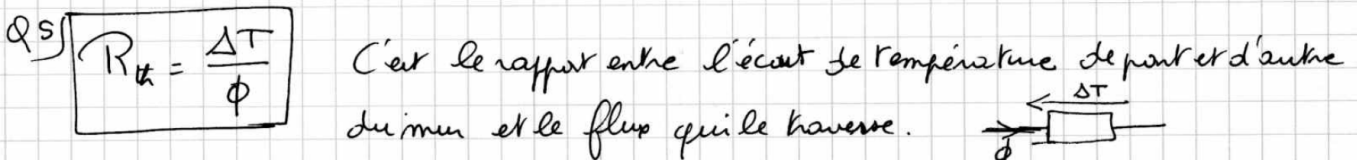 Q5) R_th = ΔT / ϕ
C'est le rapport entre l'écart de température de part et d'autre
du mur et le flux qui le traverse.
ΔT
ϕ